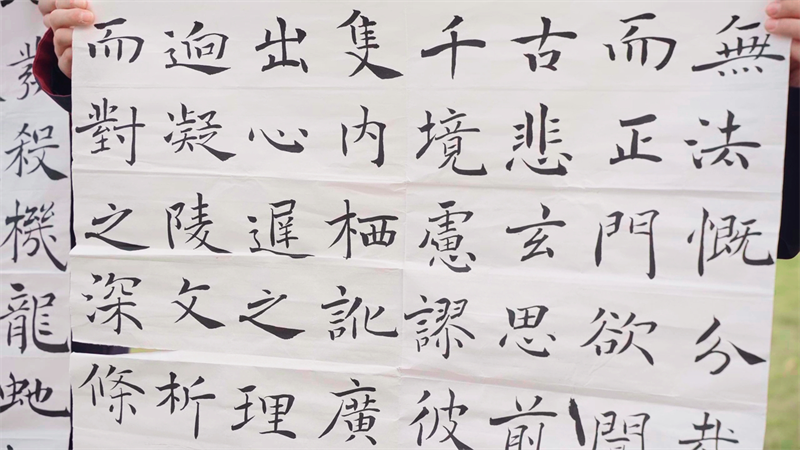 而逈出隻千古而無
對凝心內境悲正法
之陵遲栖慮玄門慨
深文之訛謬思欲分
條析理廣彼前聞
發殺機龍虵